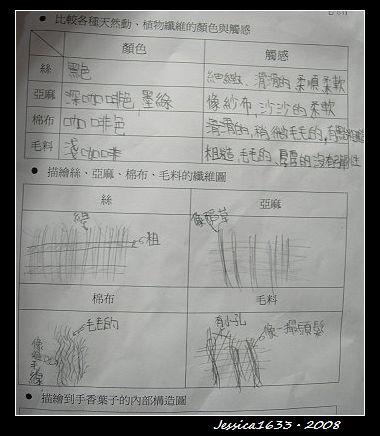 • 比較各種天然動、植物纖維的顏色與觸感
顏色 觸感
絲 黑色 細細、滑滑的柔順柔軟
亞麻 深咖啡色,墨綠 像紗布,沙沙的柔軟
棉布 咖啡色 滑滑的,稍微毛毛的,
毛料 淺咖啡 粗糙,毛毛的、厚厚的沒有彈性
• 描繪絲、亞麻、棉布、毛料的纖維圖
絲 亞麻
粗
棉布 毛料
毛毛的 有小孔
像 線 像一撮頭髮
• 描繪到手香葉子的內部構造圖
Jessica1633 · 2008